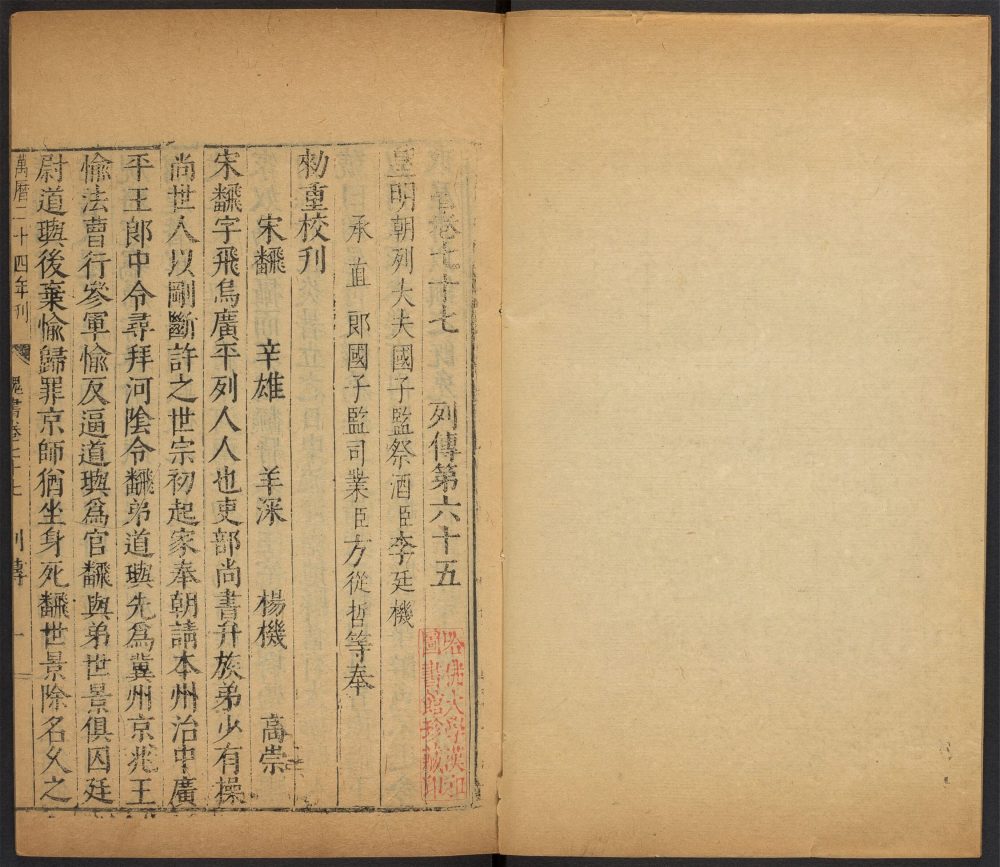 魏書卷七十七 列傳第六十五
皇明朝列大夫國子監祭酒臣李廷機
承直郎國子監司業臣方從哲等奉
勑重校刊
宋飜 辛雄 羊深 楊機 高崇
宋飜字飛烏廣平列人人也吏部尚書弁族弟少有操
尚世人以剛斷許之世宗初起家奉朝請本州治中廣
平王郎中令尋拜河陰令飜弟道璵先爲冀州京兆王
愉法曹行參軍愉反逼道璵爲官飜與弟世景俱囚廷
尉道璵後棄愉歸罪京師猶坐身死飜世景除名久之
萬曆二十四年刊 魏書卷七十七 列傳 一
哈佛大學漢和
圖書館珍藏印